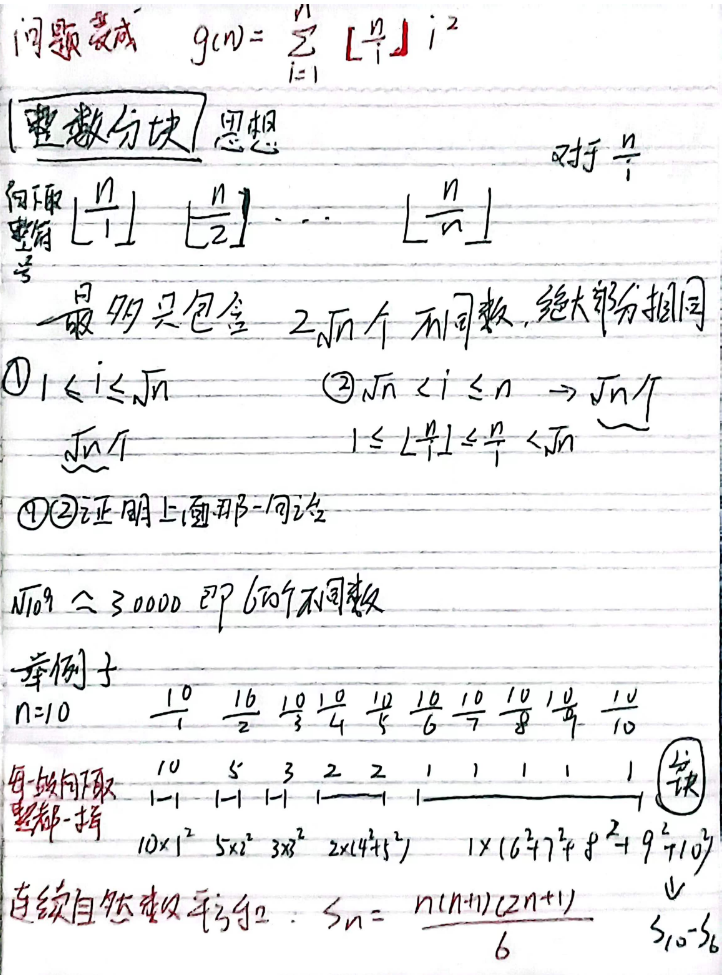 问题变成 g(n)= n∑i=1 ⌊n/i⌋ i²
整数分块 思想
对于 n/i
向下取整符号 ⌊n/1⌋ ⌊n/2⌋ ... ⌊n/n⌋
最多只包含 2√n个 不同数，绝大部分相同
① 1≤i≤√n ②√n<i≤n → √n个
√n个 1≤⌊n/i⌋≤n/i<√n
①②证明上面那一句话
√10⁹ ≈ 30000 即 6万个不同数
举例子
n=10 10/1 10/2 10/3 10/4 10/5 10/6 10/7 10/8 10/9 10/10
每一段向下取整都一样 10 5 3 2 2 1 1 1 1 1 分块
10×1² 5×2² 3×3² 2×(4²+5²) 1×(6²+7²+8²+9²+10²)
↓
连续自然数平方和: Sn= n(n+1)(2n+1)/6 S₁₀-S₆